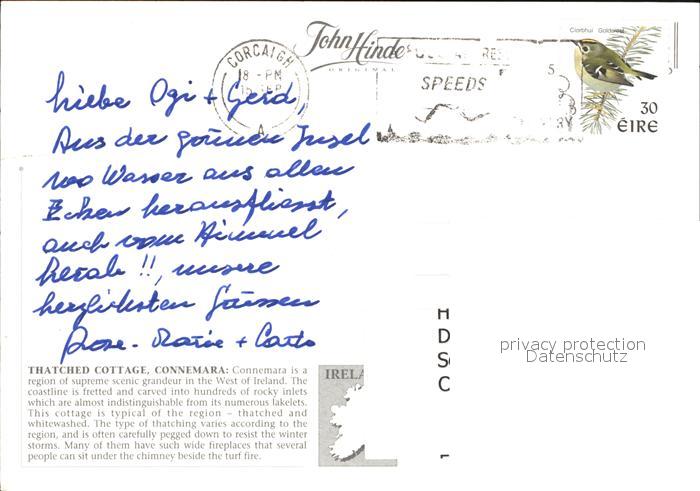 John Hinde
ORIGINAL
CORCAIGH
8 - PM
SEP
A
SPEEDS
Ciorbhuí Goldcrest
30
ÉIRE
Liebe Ogi + Gerd,
Aus der grünen Insel
wo Wasser aus allen
Ecken herausfliesst,
auch vom Himmel
herab !!, unsere
herzlichsten Grüssen
Rose-Marie + Carlo
THATCHED COTTAGE, CONNEMARA: Connemara is a
region of supreme scenic grandeur in the West of Ireland. The
coastline is fretted and carved into hundreds of rocky inlets
which are almost indistinguishable from its numerous lakelets.
This cottage is typical of the region – thatched and
whitewashed. The type of thatching varies according to the
region, and is often carefully pegged down to resist the winter
storms. Many of them have such wide fireplaces that several
people can sit under the chimney beside the turf fire.
IRELA
H
D
S
C
privacy protection
Datenschutz